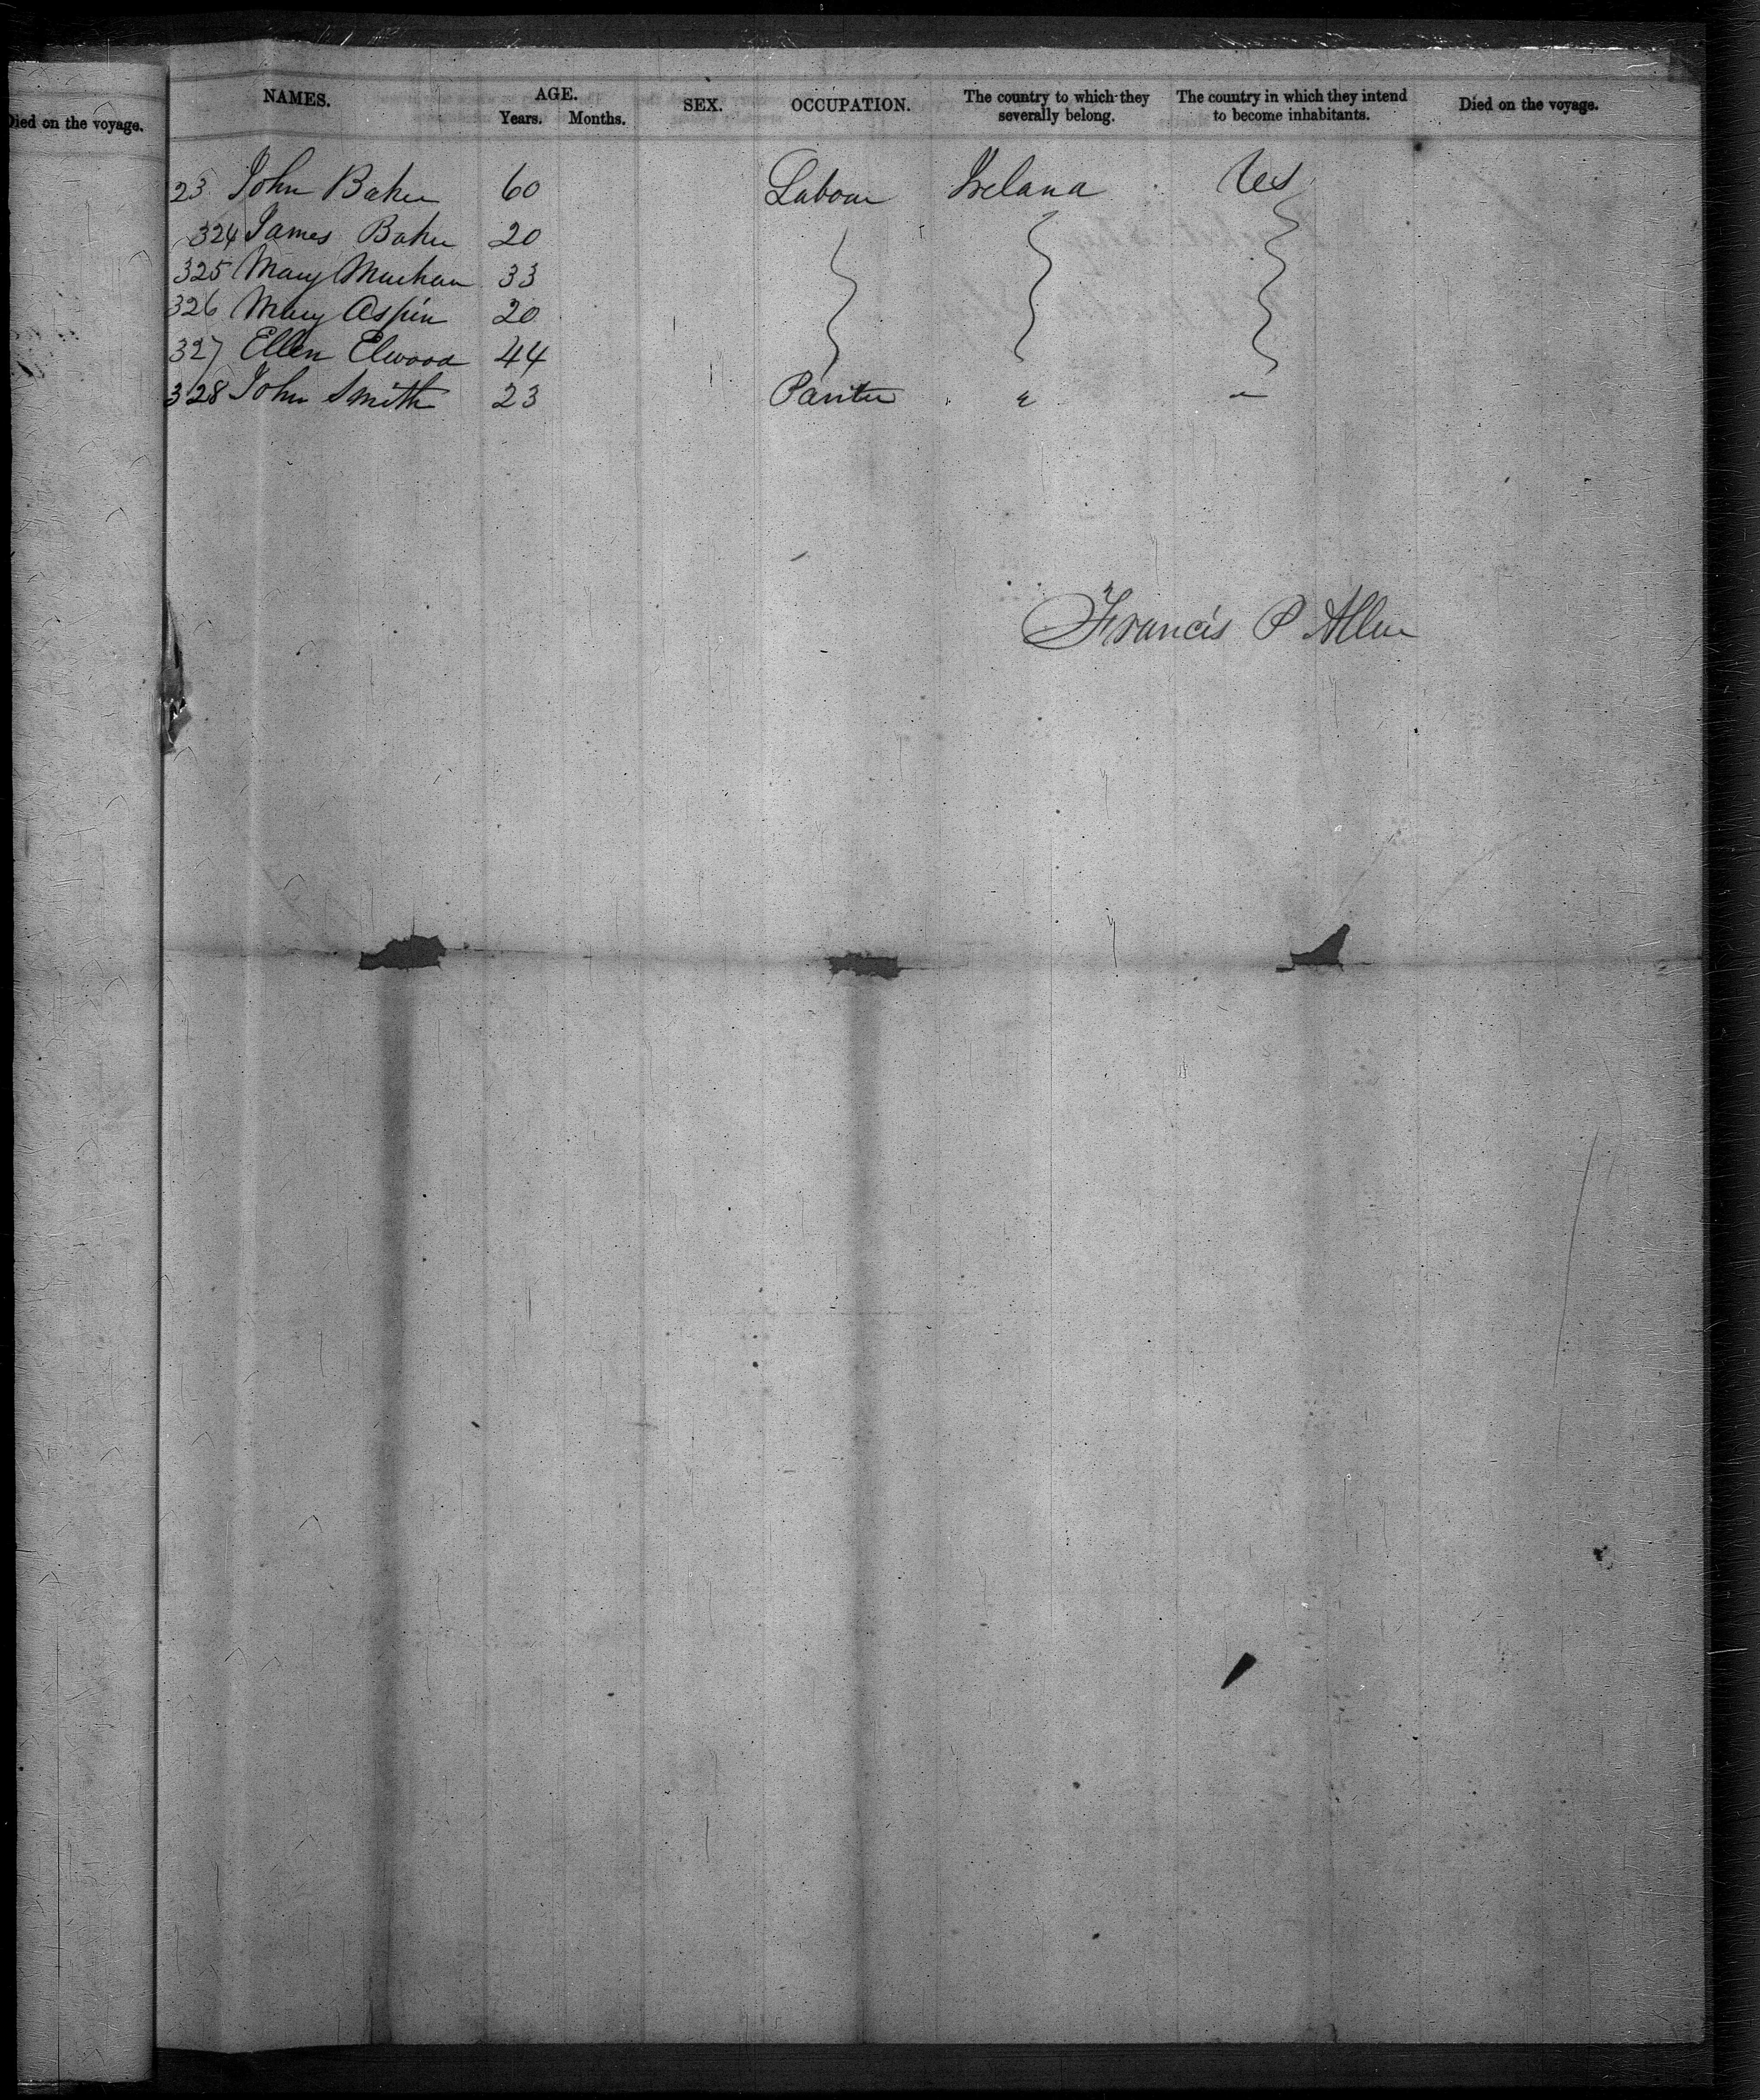 Died on the voyage.
NAMES. AGE. SEX. OCCUPATION. The country to which they severally belong. The country in which they intend to become inhabitants. Died on the voyage.
Years. Months.
23 John Baker 60 Labour Ireland U S
324 James Baker 20
325 Mary 33
326 Mary Aspin 20
327 Ellen Elwood 44
328 John Smith 23 Painter " "
Francis P Allen